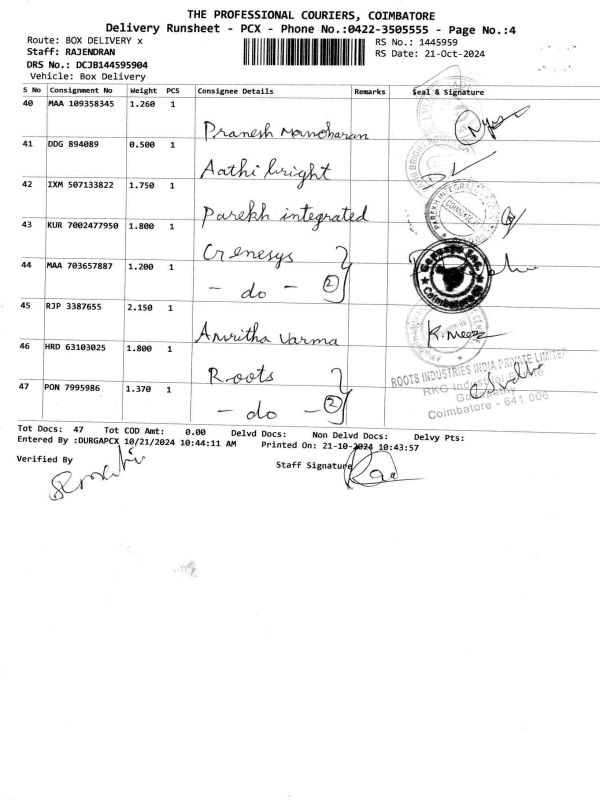 THE PROFESSIONAL COURIERS, COIMBATORE
Delivery Runsheet - PCX - Phone No.:0422-3505555 - Page No.:4
Route: BOX DELIVERY x
RS No.: 1445959
Staff: RAJENDRAN
RS Date: 21-Oct-2024
DRS No.: DCJB144595904
Vehicle: Box Delivery
S No Consignment No Weight PCS Consignee Details Remarks Seal & Signature
40 MAA 109358345 1.260 1
Pranesh Manoharan
41 DDG 894089 0.500 1
Aathi bright
42 IXM 507133822 1.750 1
Parekh integrated
43 KUR 7002477950 1.800 1
Crenesys
44 MAA 703657887 1.200 1
- do - 2
45 RJP 3387655 2.150 1
Amritha varma
K. Meena
46 HRD 63103025 1.800 1
Roots
ROOTS INDUSTRIES INDIA PRIVATE LIMITED
47 PON 7995986 1.370 1
- do - 2
Coimbatore - 641 006
Tot Docs: 47 Tot COD Amt: 0.00 Delvd Docs: Non Delvd Docs: Delvy Pts:
Entered By :DURGAPCX 10/21/2024 10:44:11 AM Printed On: 21-10-2024 10:43:57
Verified By
Staff Signature